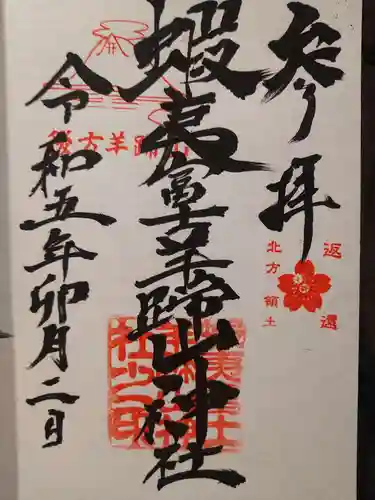 参拝
北方領土
返還
蝦夷富士羊蹄山神社
令和五年卯月二日